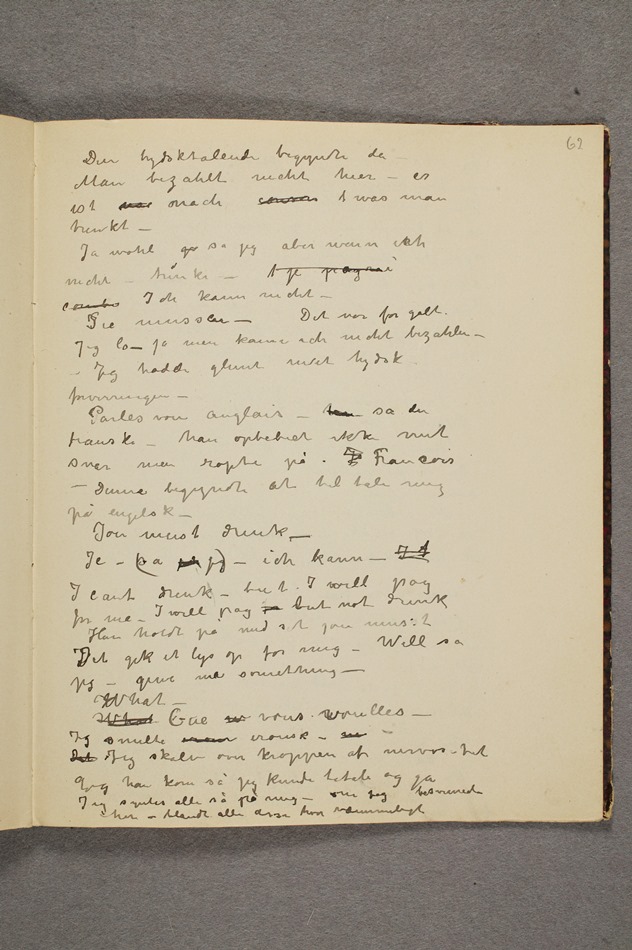 62
Den tydsktalende begyndte da –
Man bezahlt nicht hier – es
ist onach was man
trinkt –
Ja wohl sa jeg aber wenn ich
nicht – trinke –
Ich kann nicht –
Sie mussen – Det var for galt.
Jeg lo – ja men kann ich nicht bezahlen –
– Jeg hadde glemt mit tydsk
forvirringen –
Parles vou anglais – sa den
franske – han opbebiet ikke mit
svar men ropte på . Francois
– Denne begyndte at til tale mig
på engelsk –
You must drink –
Je – (sa jeg) – ich kann –
I cant drink – but I will pay
for me – I will pay – but not drink
Han holdt på med at you must
Det gik et lys op for mig – Well sa
jeg – give me something –
What –
Que vous voulles –
Jeg smilte ironisk –
Jeg skalv over kroppen af nervøs-het
og han kom så jeg kunde betale og gå
Jeg syntes alle så på mig – om jeg besvimede
her – blandt alle disse hvor væmmeligt